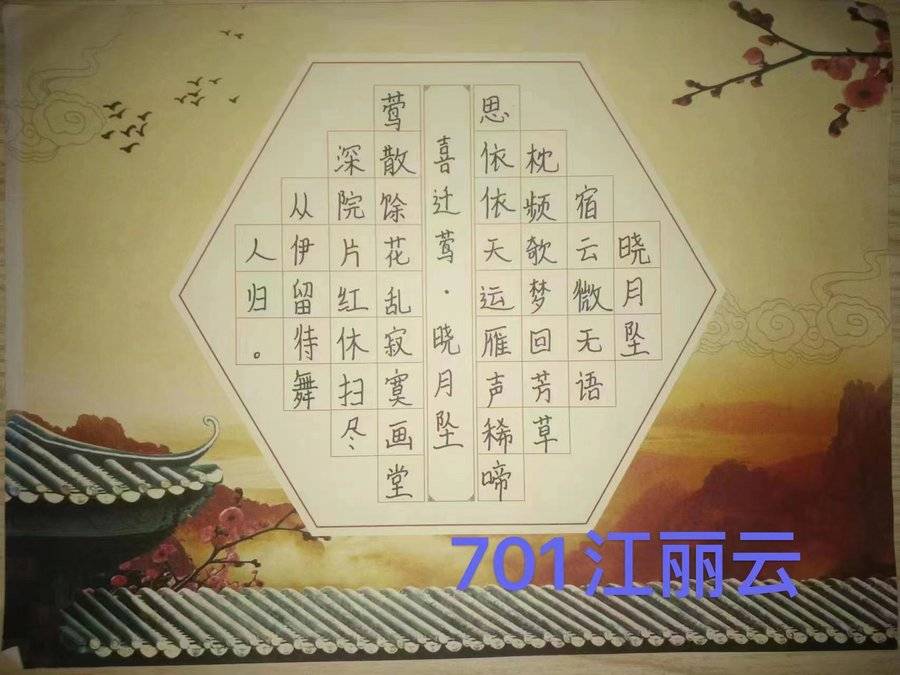 晓月坠
宿云微无语
枕频欹梦回芳草
思依依天运雁声稀啼
喜迁莺·晓月坠
莺散馀花乱寂寞画堂
深院片红休扫尽
从伊留待舞
人归。
701江丽云